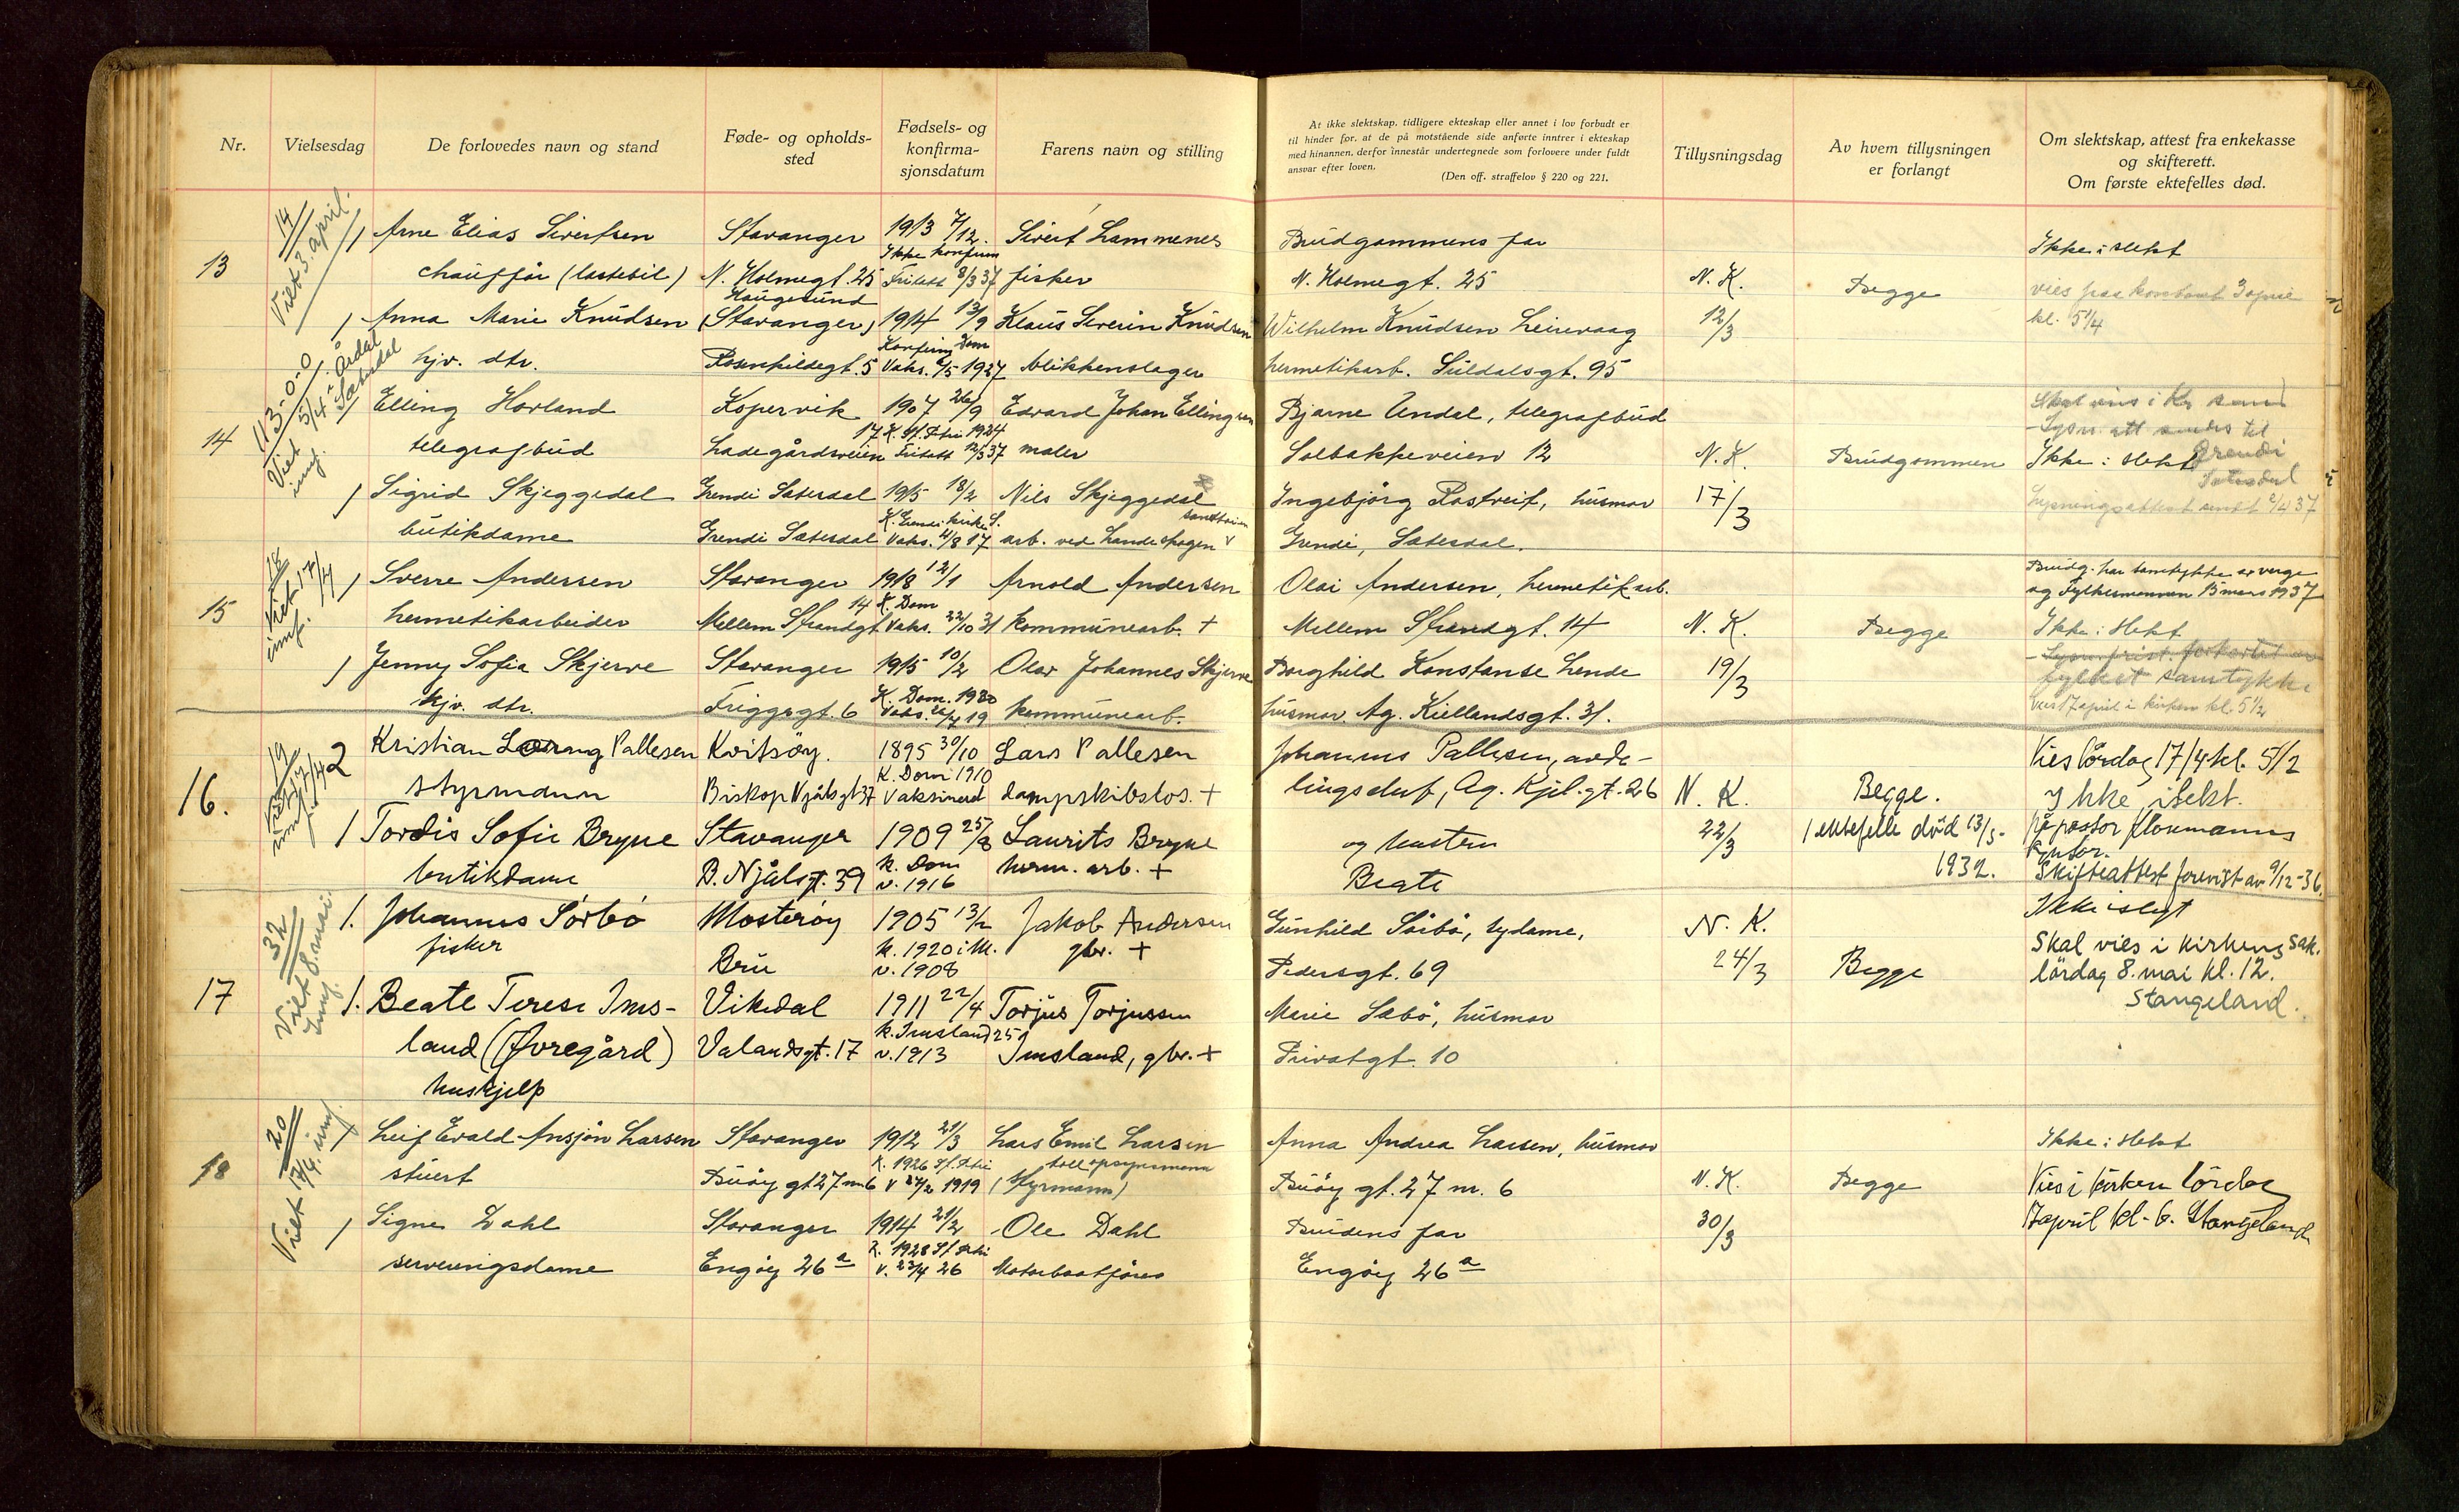 Nr.
Vielsesdag
De forlovedes navn og stand
Føde- og opholds-
sted
Fødsels- og
konfirma-
sjonsdatum
Farens navn og stilling
At ikke slektskap, tidligere ekteskap eller annet i lov forbudt er
til hinder for, at de på motstående side anførte inntrer i ekteskap
med hinannen, derfor innestår undertegnede som forlovere under fuldt
ansvar efter loven.
(Den off. straffelov § 220 og 221.
Tillysningsdag
Av hvem tillysningen
er forlangt
Om slektskap, attest fra enkekasse
og skifterett.
Om første ektefelles død.
13
14
Viet 3. april.
1 Arne Elias Sivertsen
chauffør (lastebil)
Stavanger
N. Holmegt. 25
1913 7/12.
Ikke konfirm
Fritatt 8/3 37
Sivert Lammenes
fisker
Brudgommens far
N. Holmegt. 25
N. K.
12/3
Begge
Ikke i slekt
vies paa kontoret 3 april
kl. 5 1/4
1 Anna Marie Knudsen
hjv. dtr.
Haugesund
(Stavanger)
Rosenkildegt. 5
1914 13/9
Konfirm Dom
Vaks. 1927
Klaus Severin Knudsen
blikkenslager
Wilhelm Knudsen Leirvaag
hermetikarb. Suldalsgt. 95
14
113-0-0
Viet 5/4 i Årdal
Sætesdal
1 Elling Hovland
telegrafbud
Kopervik
Ladegårdsveien 17
1907 26/9
K. St. Petri 1924
Fritatt 12/3 37
Edvard Johan Ellingsen
maler
Bjarne Undal, telegrafbud
Solbakkeveien 12
N. K.
17/3
Brudgommen
Ikke i slekt
Grendi
Setesdal
Lysningsattest sendt 2/4 37
1 Sigrid Skjeggedal
butikdame
Grendi Sætesdal
Grendi Sætesdal
1915 18/2
K. Grendi kirke S.
Vaks. 4/8 17
Nils Skjeggedal
arb. ved Landeskogen
Ingebjörg Rostveit, husmor
Grendi, Sætesdal.
15
18
Viet 17/4
1 Sverre Andersen
hermetikarbeider
Stavanger
Mellem Strandgt. 14
1918 12/1
K. Dom
Vaks. 22/10 31
Arnold Andersen
kommunearb. +
Olai Andersen, hermetikarb.
Mellem Strandgt. 14
N. K.
19/3
Begge
Brudg. har samtykke av verge
og Fylkesmannen 15 mars 1937
Ikke i slekt
- Lysn. frist forkortet av
fylket samtykke
Vies 17 april i kirken kl. 5 1/2
1 Jenny Sofia Skjerve
hjv. dtr.
Stavanger
Friggsgt. 6
1915 10/2
K. Dom. 1930
Vaks. 26/4 19
Olav Johannes Skjerve
kommunearb.
Borghild Konstanse Lende
husmor Ag. Kiellandsgt. 31.
16.
19
Viet 17/4
2 Kristian Lorang Pallesen
styrmann
Kvitsøy.
Biskop Njålsgt 37
1895 30/10
K. Dom 1910
Vaksinerd
Lars Pallesen
dampskibslos. +
Johannes Pallesen, avde-
lingschef, Ag. Kjel. gt. 26
og kusten
Beate
N. K.
22/3
Begge.
1 ektefelle död 13/5-
1932.
Vies lördag 17/4 kl. 5 1/2
Ikke i slekt.
på pastor Flormanns
kontor.
Skifteattest forevist av 9/12-36.
1 Tordis Sofie Bryne
butikdame
Stavanger
B. Njålsgt. 39
1909 25/8
k. Dom
v. 1916
Laurits Bryne
herm. arb. +
17
32
Viet 8. mai.
1. Johannes Sörbö
fisker
Mosterøy
Bru
1905 13/2
k. 1920 i M.
v. 1908
Jakob Andersen
gbr. +
Gunhild Sörbö, sydame,
Pedersgt. 69
N. K.
24/3
Begge
Ikke i slegt
Skal vies i kirkens sak.
lördag 8. mai kl. 12.
Stangeland.
1. Beate Terese Ims-
land (Øvregård)
huskjelp
Vikedal
Valandsgt. 17
1911 22/4
k. Imsland 25
v. 1913
Torjus Torjussen
Imsland, gbr. +
Marie Sæbö, husmor
Privatgt. 10
18
20
Viet 17/4. imf.
1 Leif Evald Ansjön Larsen
stuert
Stavanger
Buöy gt 27 nr 6
1912 21/3
K. 1926 St. Petri
v 27/2 1919
Lars Emil Larsen
tollopsynsmann
(Styrmann)
Anna Andrea Larsen, husmor
Buöy gt. 27 nr. 6
N. K.
30/3
Begge
Ikke i slekt
Vies i kirken lördag
17 april kl. 6. Stangeland
1 Signe Dahl
serveringsdame
Stavanger
Engöy 26 a
1914 21/2
K. 1928 St. Petri
V. 23/4 26
Ole Dahl
Motorbaatförer
Brudens far
Engöy 26 a